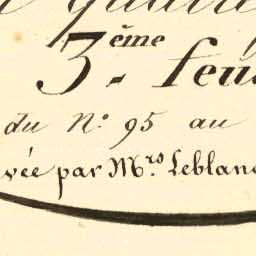 3.ème feu
du N.º 95 au
vée par M.rs Leblanc